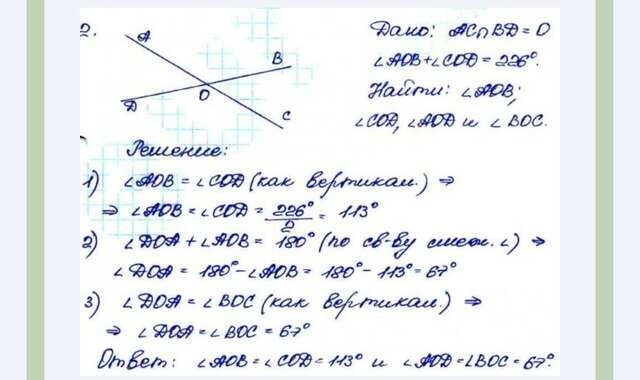 2.
A
B
O
D
C
Дано: AC∩BD=O
∠AOB+∠COD=226°.
Найти: ∠AOB;
∠COD, ∠AOD и ∠BOC.
Решение:
1) ∠AOB=∠COD (как вертикал.) ⇒
⇒ ∠AOB=∠COD= 226°/2 = 113°
2) ∠DOA+∠AOB= 180° (по св-ву смеж. ∠) ⇒
∠DOA= 180°-∠AOB= 180°-113°=67°
3) ∠DOA=∠BOC (как вертикал.) ⇒
⇒ ∠DOA=∠BOC=67°
Ответ: ∠AOB=∠COD=113° и ∠AOD=∠BOC=67°.